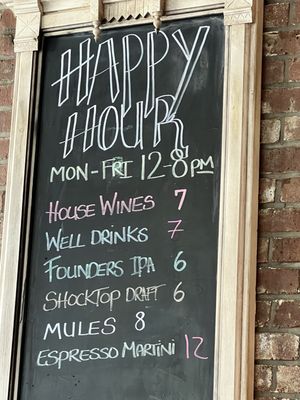 HAPPY
HOUR
MON-FRI 12-8PM
HOUSE WINES 7
WELL DRINKS 7
FOUNDERS IPA 6
SHOCKTOP DRAFT 6
MULES 8
ESPRESSO MARTINI 12